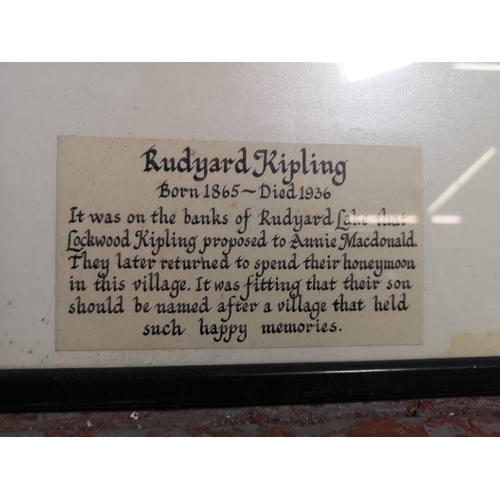 Rudyard Kipling
Born 1865~Died 1936
It was on the banks of Rudyard Lake that
Lockwood Kipling proposed to Annie Macdonald.
They later returned to spend their honeymoon
in this village. It was fitting that their son
should be named after a village that held
such happy memories.